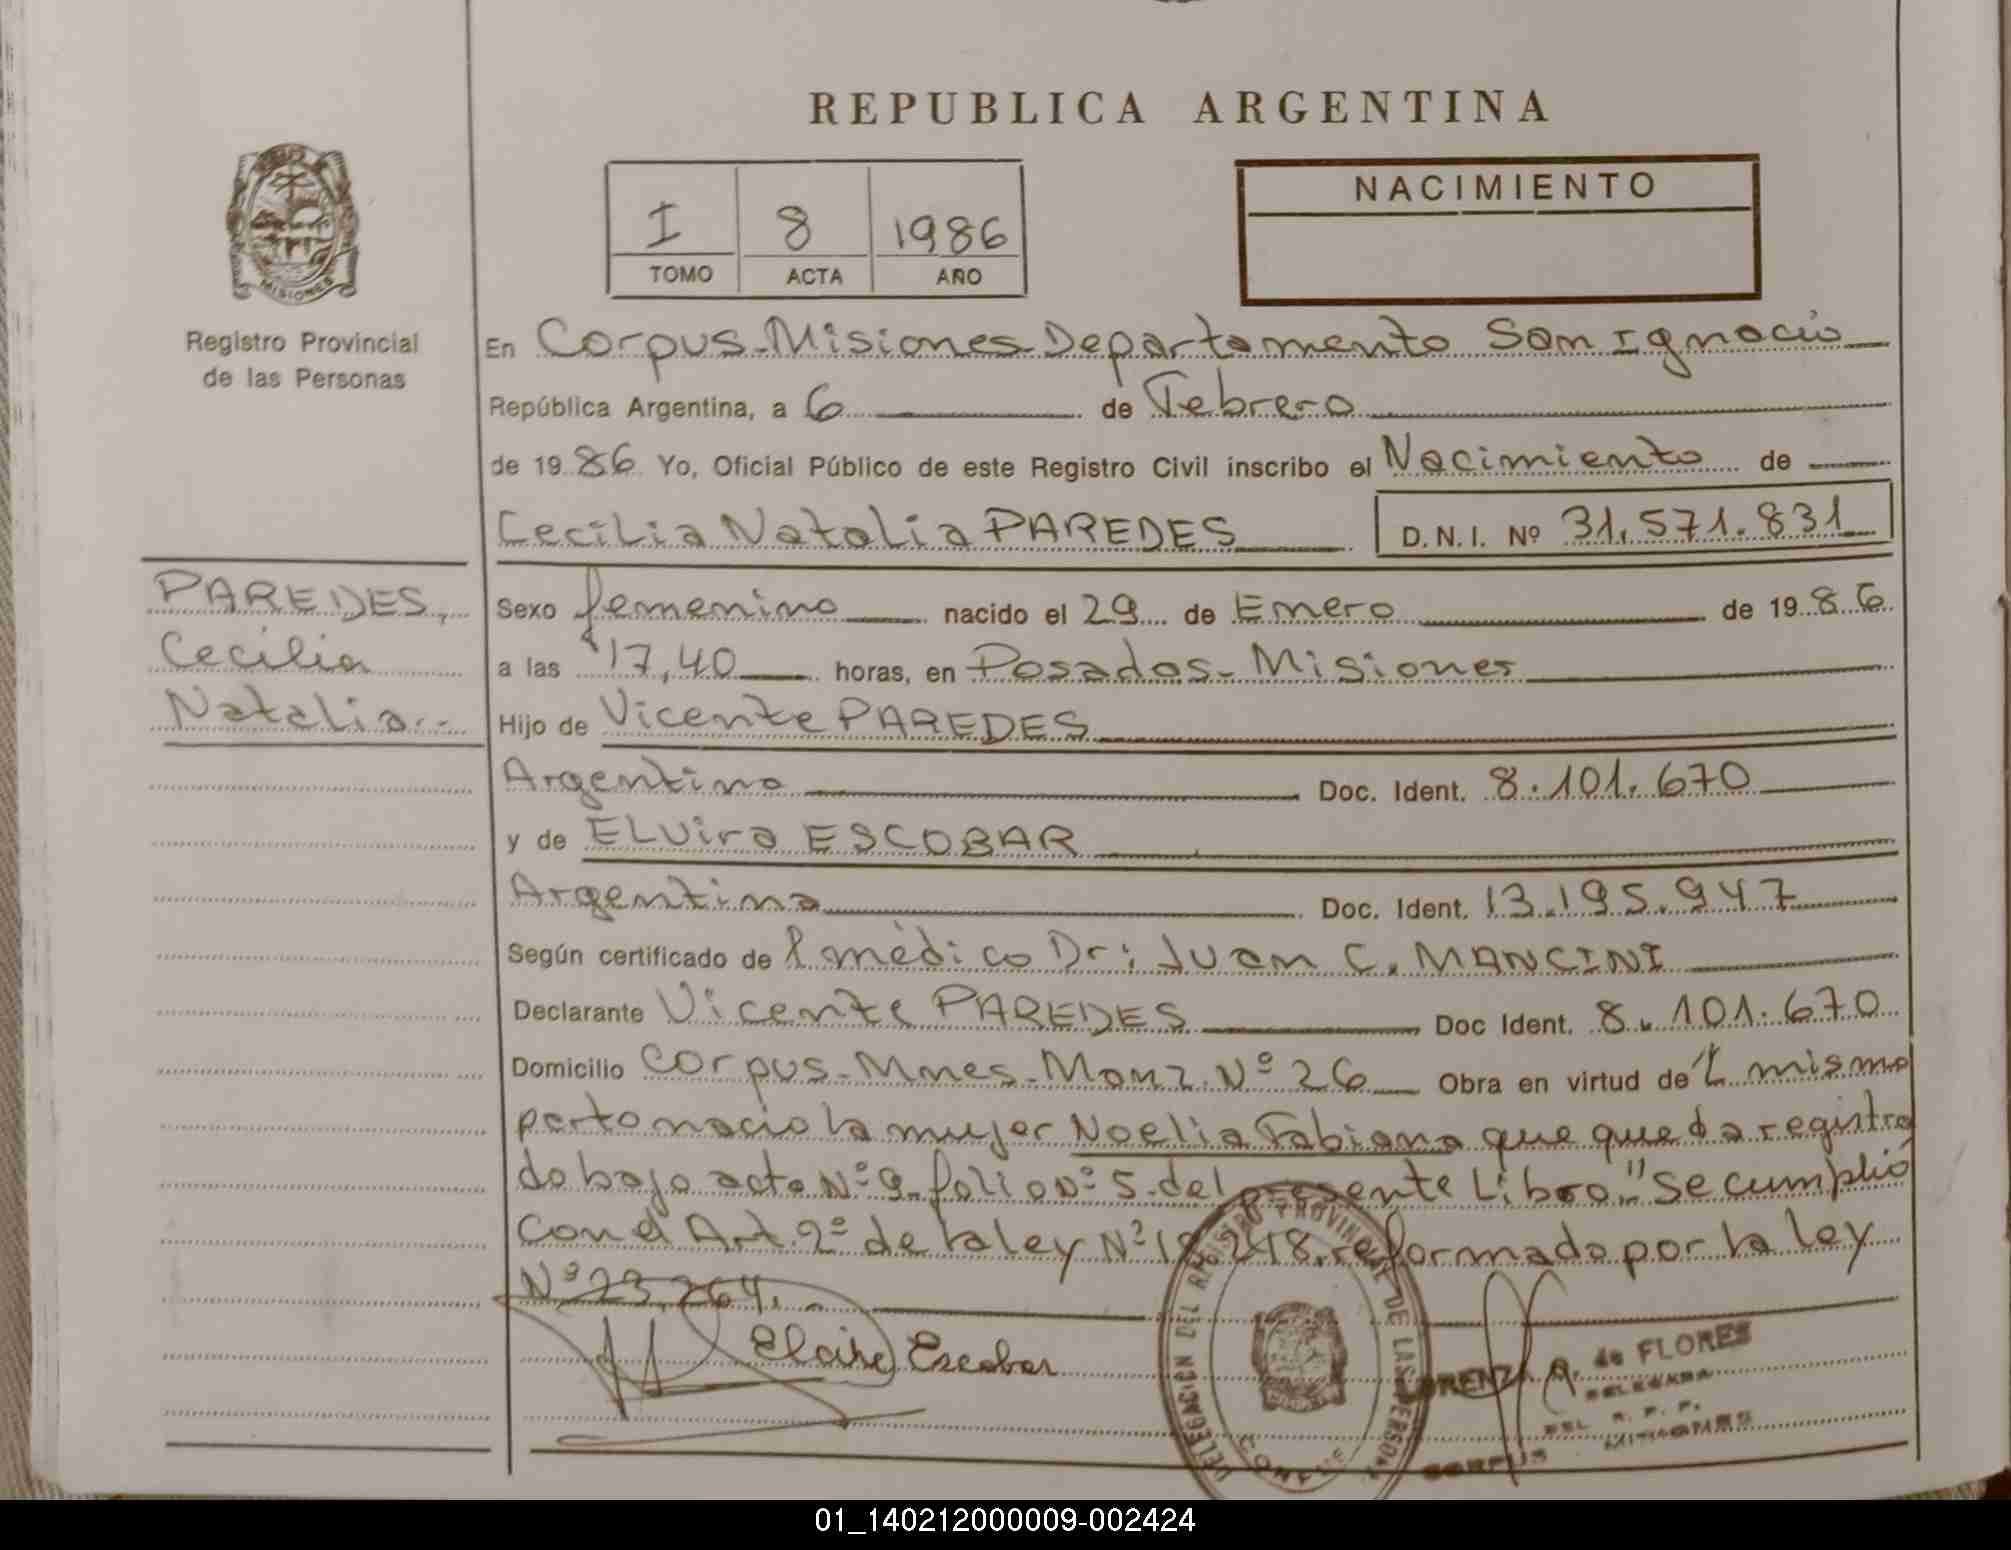 REPUBLICA ARGENTINA
I 8 1986
TOMO ACTA AÑO
NACIMIENTO
MISIONES
Registro Provincial
de las Personas
En Corpus-Misiones-Departamento San Ignacio
República Argentina, a 6 de Febrero
de 1986 Yo, Oficial Público de este Registro Civil inscribo el Nacimiento de
Cecilia Natalia PAREDES D.N.I. Nº 31.571.831
PAREDES,
Cecilia
Natalia.-
Sexo femenino nacido el 29 de Enero de 1986
a las 17,40 horas, en Posadas-Misiones
Hijo de Vicente PAREDES
Argentino Doc. Ident. 8.101.670
y de ELvira ESCOBAR
Argentina Doc. Ident. 13.195.947
Según certificado del médico Dr: Juan C. MANCINI
Declarante Vicente PAREDES Doc Ident. 8.101.670
Domicilio Corpus-Mnes-Manz.Nº 26 Obra en virtud del mismo
parto nacio la mujer Noelia Fabiana que queda registra
do bajo acta Nº 9-folio Nº 5-del presente Libro." Se cumplió
Con el Art. 2º de la ley Nº 18.248. reformado por la ley
Nº 23.264.-
Escobar
DELEGACION DEL REGISTRO PROVINCIAL DE LAS PERSONAS
LORENZA A. de FLORES
DELEGADA
DEL R. P. P.
CORPUS MISIONES
01_140212000009-002424